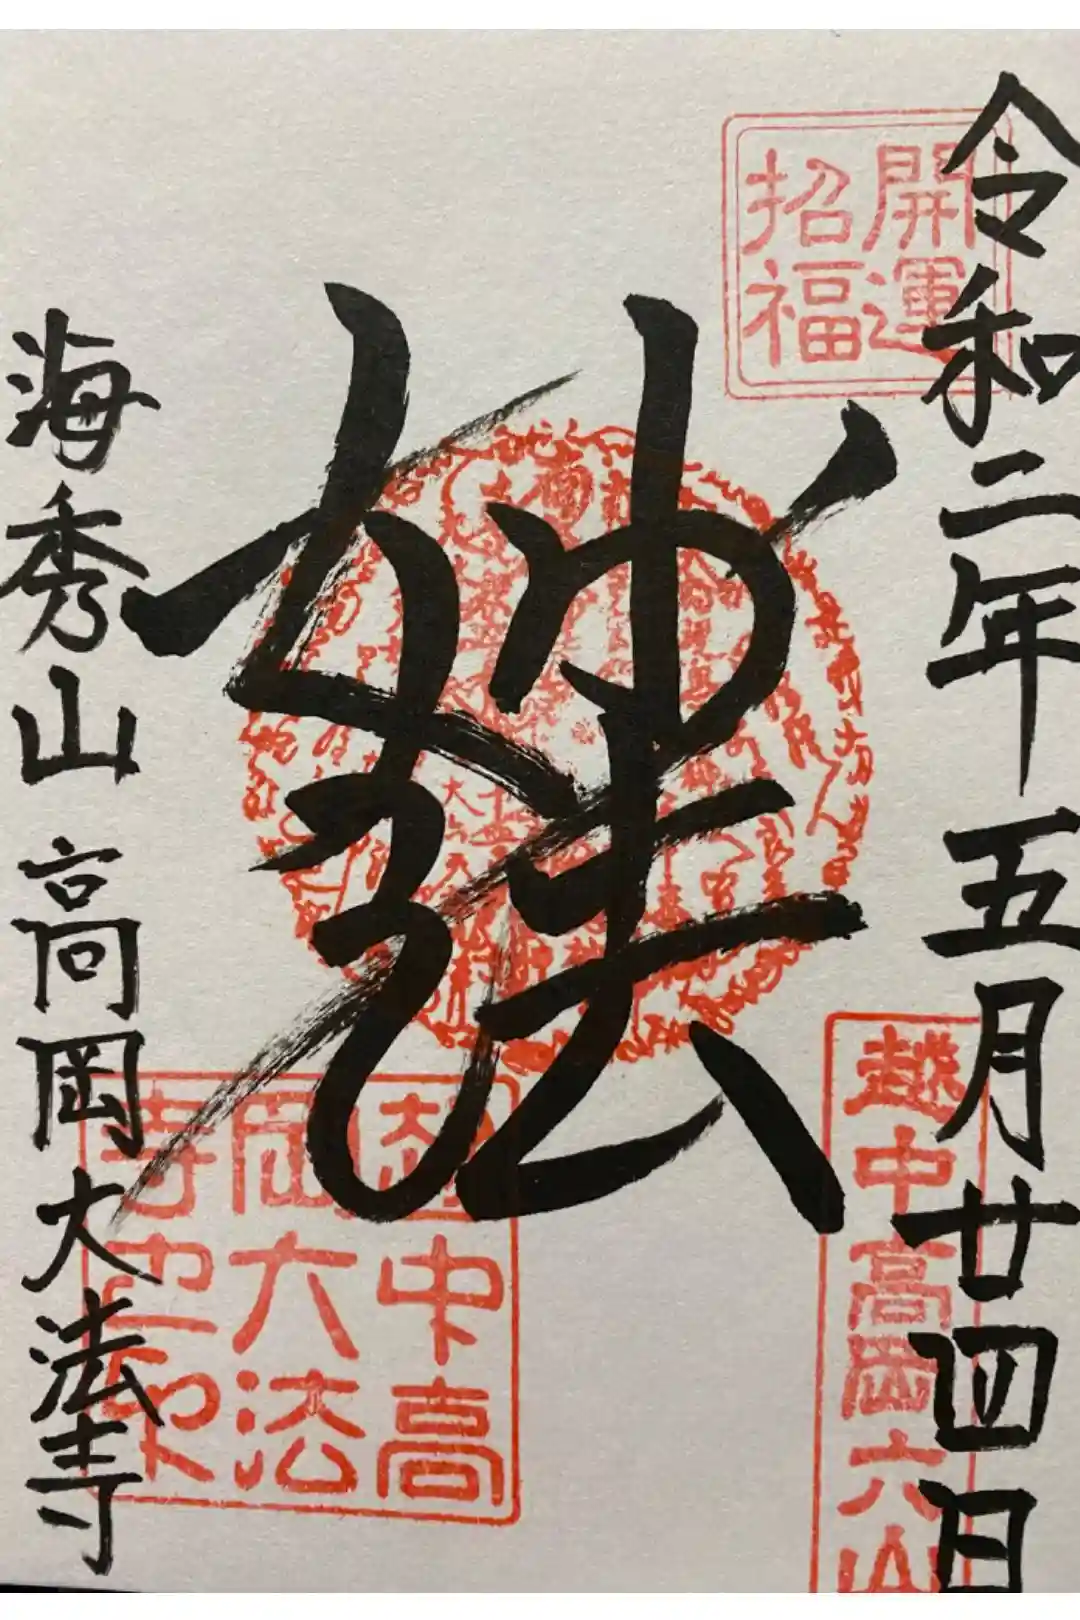 令和二年五月廿四日
開運
招福
越中高岡六山
妙法
越中高
岡大法
寺之印
海秀山 高岡大法寺